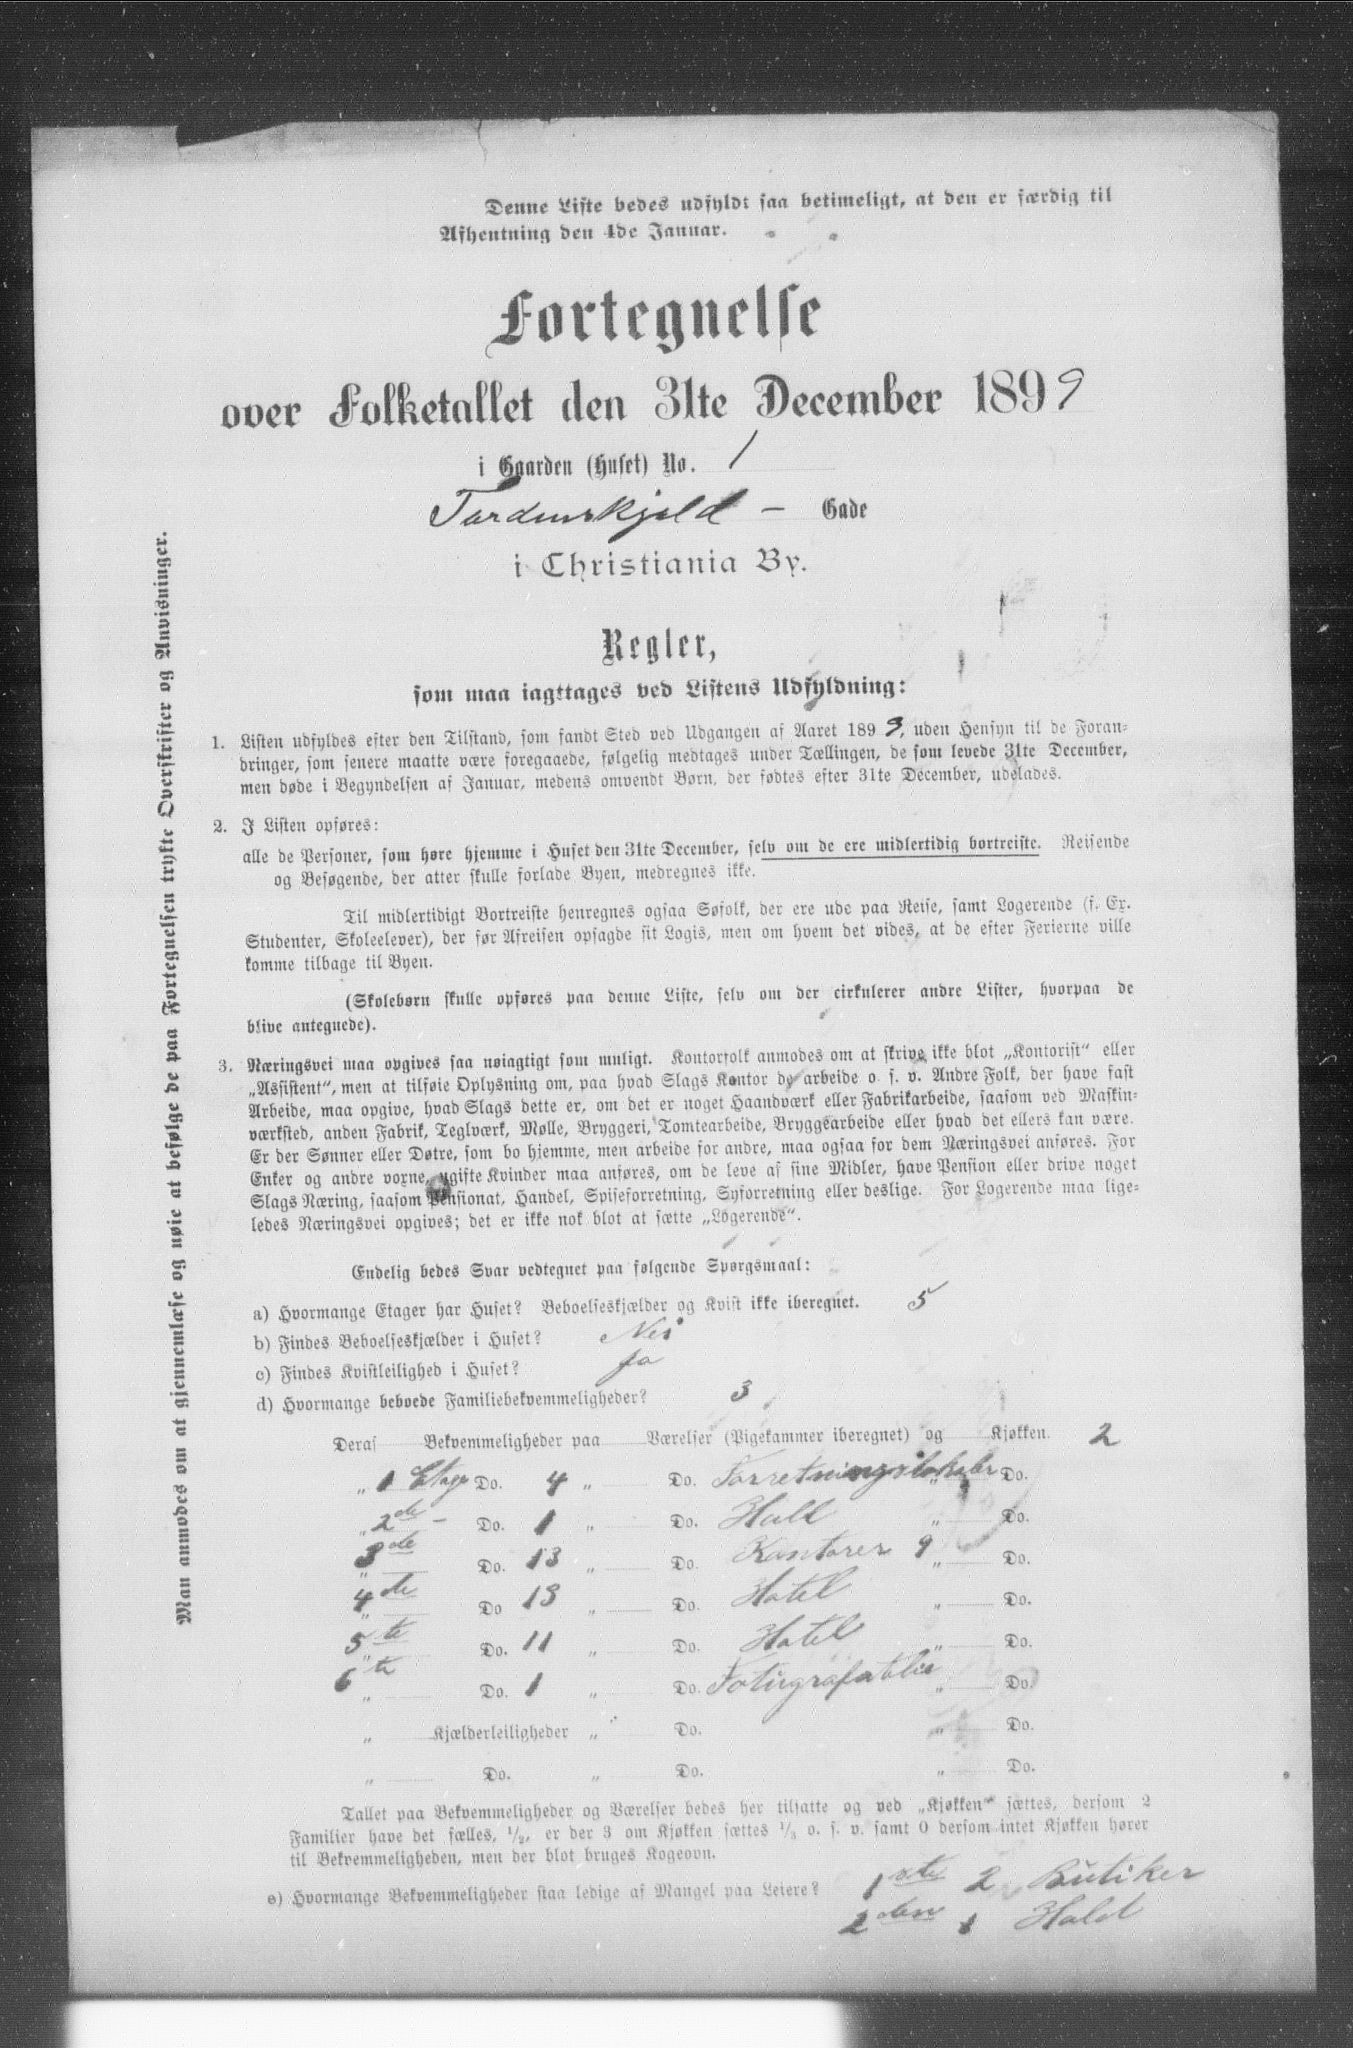 Denne Liste bedes udfyldt saa betimeligt, at den er færdig til
Afhentning den 4de Januar.
Fortegnelse
over Folketallet den 31te December 1899
i Gaarden (Huset) No. 1
Tordenskjold – Gade
i Christiania By.
Regler,
som maa iagttages ved Listens Udfyldning:
1. Listen udfyldes efter den Tilstand, som fandt Sted ved Udgangen af Aaret 1899, uden Hensyn til de Foran-
dringer, som senere maatte være foregaaede, følgelig medtages under Tællingen, de som levede 31te December,
men døde i Begyndelsen af Januar, medens omvendt Børn, der fødtes efter 31te December, udelades.
2. I Listen opføres:
alle de Personer, som høre hjemme i Huset den 31te December, selv om de ere midlertidig bortreiste. Reisende
og Besøgende, der atter skulle forlade Byen, medregnes ikke.
Til midlertidigt Bortreiste henregnes ogsaa Søfolk, der ere ude paa Reise, samt Logerende (f. Ex.
Studenter, Skoleelever), der før Afreisen opsagde sit Logis, men om hvem det vides, at de efter Ferierne ville
komme tilbage til Byen.
(Skolebørn skulle opføres paa denne Liste, selv om der cirkulerer andre Lister, hvorpaa de
blive antegnede).
3. Næringsvei maa opgives saa nøiagtigt som muligt. Kontorfolk anmodes om at skrive ikke blot „Kontorist“ eller
„Assistent“, men at tilføie Oplysning om, paa hvad Slags Kontor de arbeide o. s. v. Andre Folk, der have fast
Arbeide, maa opgive, hvad Slags dette er, om det er noget Haandværk eller Fabrikarbeide, saasom ved Maskin-
værksted, anden Fabrik, Teglværk, Mølle, Bryggeri, Tomtearbeide, Bryggearbeide eller hvad det ellers kan være.
Er der Sønner eller Døtre, som bo hjemme, men arbeide for andre, maa ogsaa for dem Næringsvei anføres. For
Enker og andre voxne, ugifte Kvinder maa anføres, om de leve af sine Midler, have Pension eller drive noget
Slags Næring, saasom Pensionat, Handel, Spiseforretning, Syforretning eller deslige. For Logerende maa lige-
ledes Næringsvei opgives; det er ikke nok blot at sætte „Logerende“.
Endelig bedes Svar vedtegnet paa følgende Spørgsmaal:
a) Hvormange Etager har Huset? Beboelseskjælder og Kvist ikke iberegnet. 5
b) Findes Beboelseskjælder i Huset? Nei
c) Findes Kvistleilighed i Huset? Ja
d) Hvormange beboede Familiebekvemmeligheder? 3
Deraf Bekvemmeligheder paa Værelser (Pigekammer iberegnet) og Kjøkken. 2
„ 1 Etage Do. 4 „ Do. Forretningslokaler „ Do.
„ 2de – Do. 1 „ Do. Hall „ Do.
„ 3de Do. 13 „ Do. Kontorer 9 „ Do.
„ 4de Do 13 „ Do. Hotel „ Do.
„ 5te Do. 11 „ Do. Hotel „ Do.
„ 6te Do. 1 „ Do. „ Do.
„ Kjælderleiligheder „ Do. „ Do.
„ Do. „ Do. „ Do.
Tallet paa Bekvemmeligheder og Værelser bedes her tilsatte og ved „Kjøkken“ sættes, dersom 2
Familier have det fælles, 1/2, er der 3 om Kjøkken sættes 1/3 o. s. v. samt 0 dersom intet Kjøkken hører
til Bekvemmeligheden, men der blot bruges Kogeovn.
e) Hvormange Bekvemmeligheder staa ledige af Mangel paa Leiere? 1ste 2 Butiker
2den 1 Hald
Man anmodes om at gjennemlæse og nøie at befølge de paa Fortegnelsen trykte Overskrifter og Anvisninger.